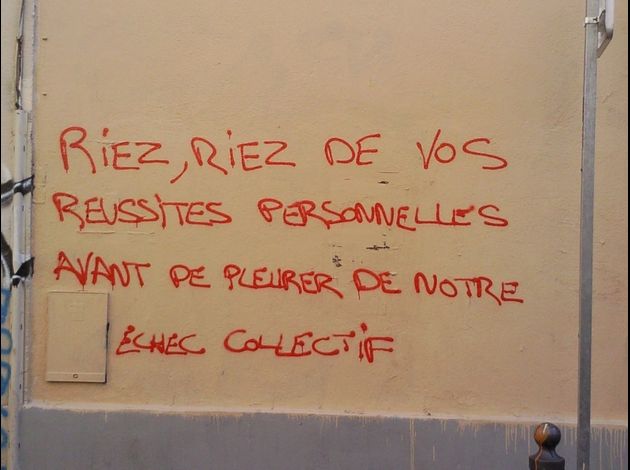 RiEZ, RiEZ DE VOS
REUSSITES PERSONNELLES
AVANT DE PLEURER DE NOTRE
ÉCHEC COLLECTiF